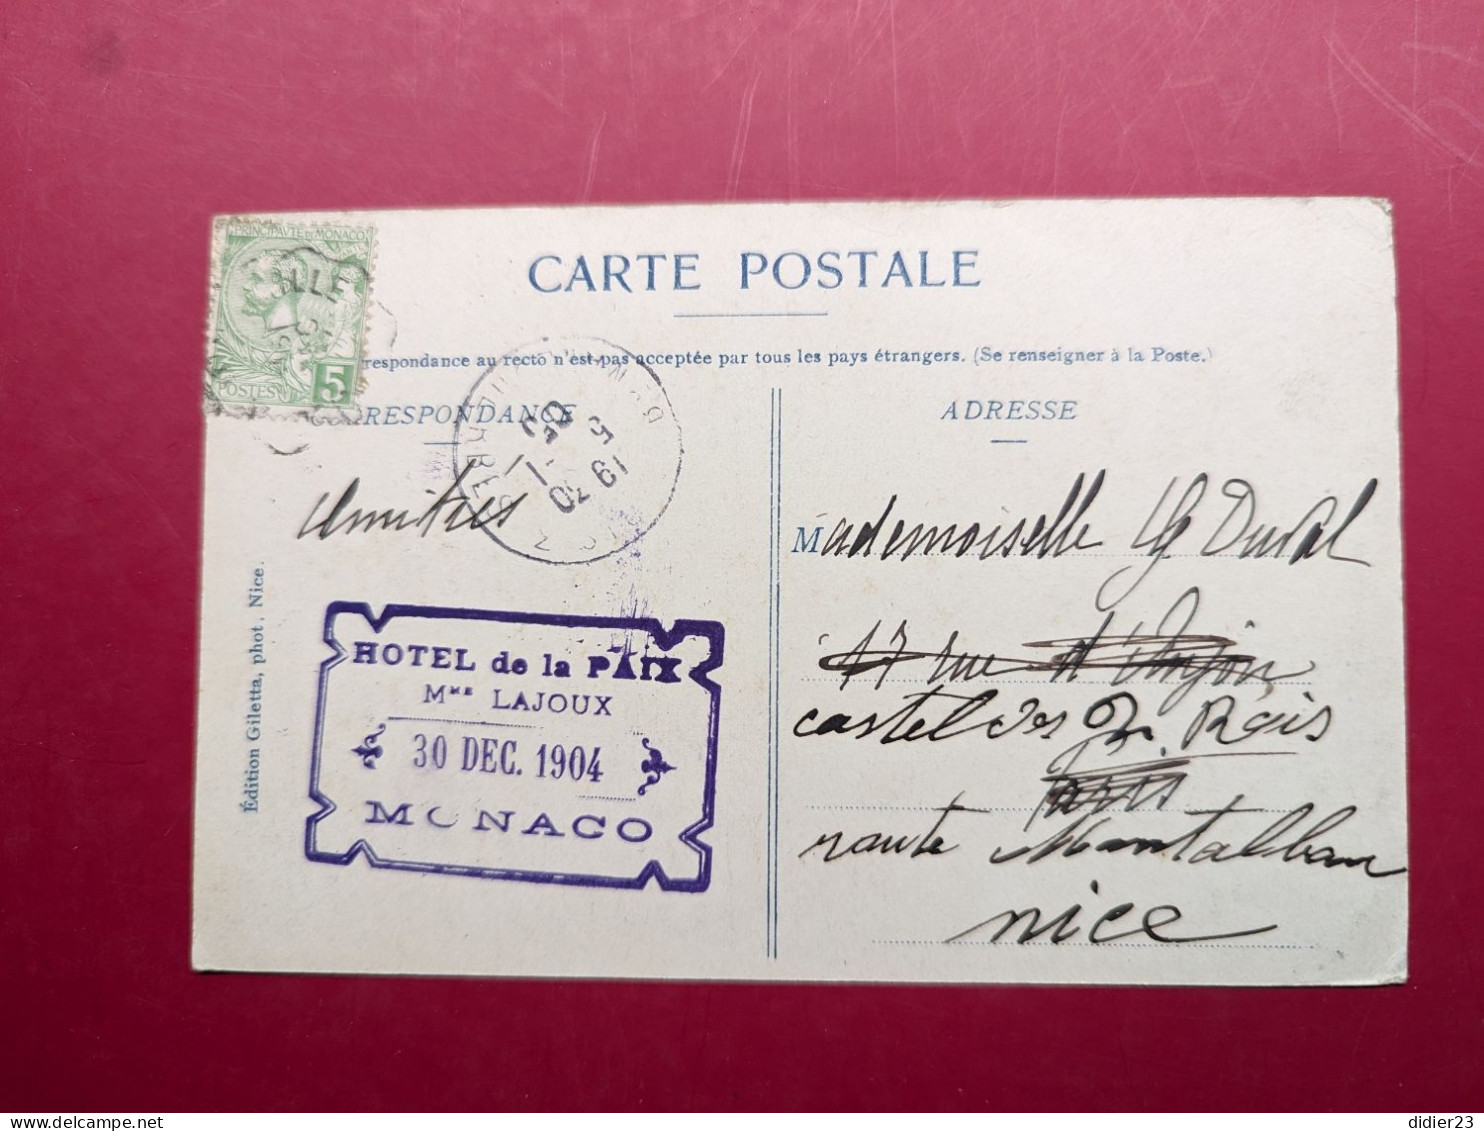 PRINCIPAUTÉ DE MONACO
POSTES
5
CARTE POSTALE
respondance au recto n'est pas acceptée par tous les pays étrangers. (Se renseigner à la Poste.)
RRESPONDANCE
ADRESSE
Amitiés
Mademoiselle G Duval
17 rue d'Anjou
castel des Rois
Paris
route Montalban
nice
HOTEL de la PAIX
MME LAJOUX
30 DEC. 1904
MONACO
Édition Giletta, phot, Nice.
didier23